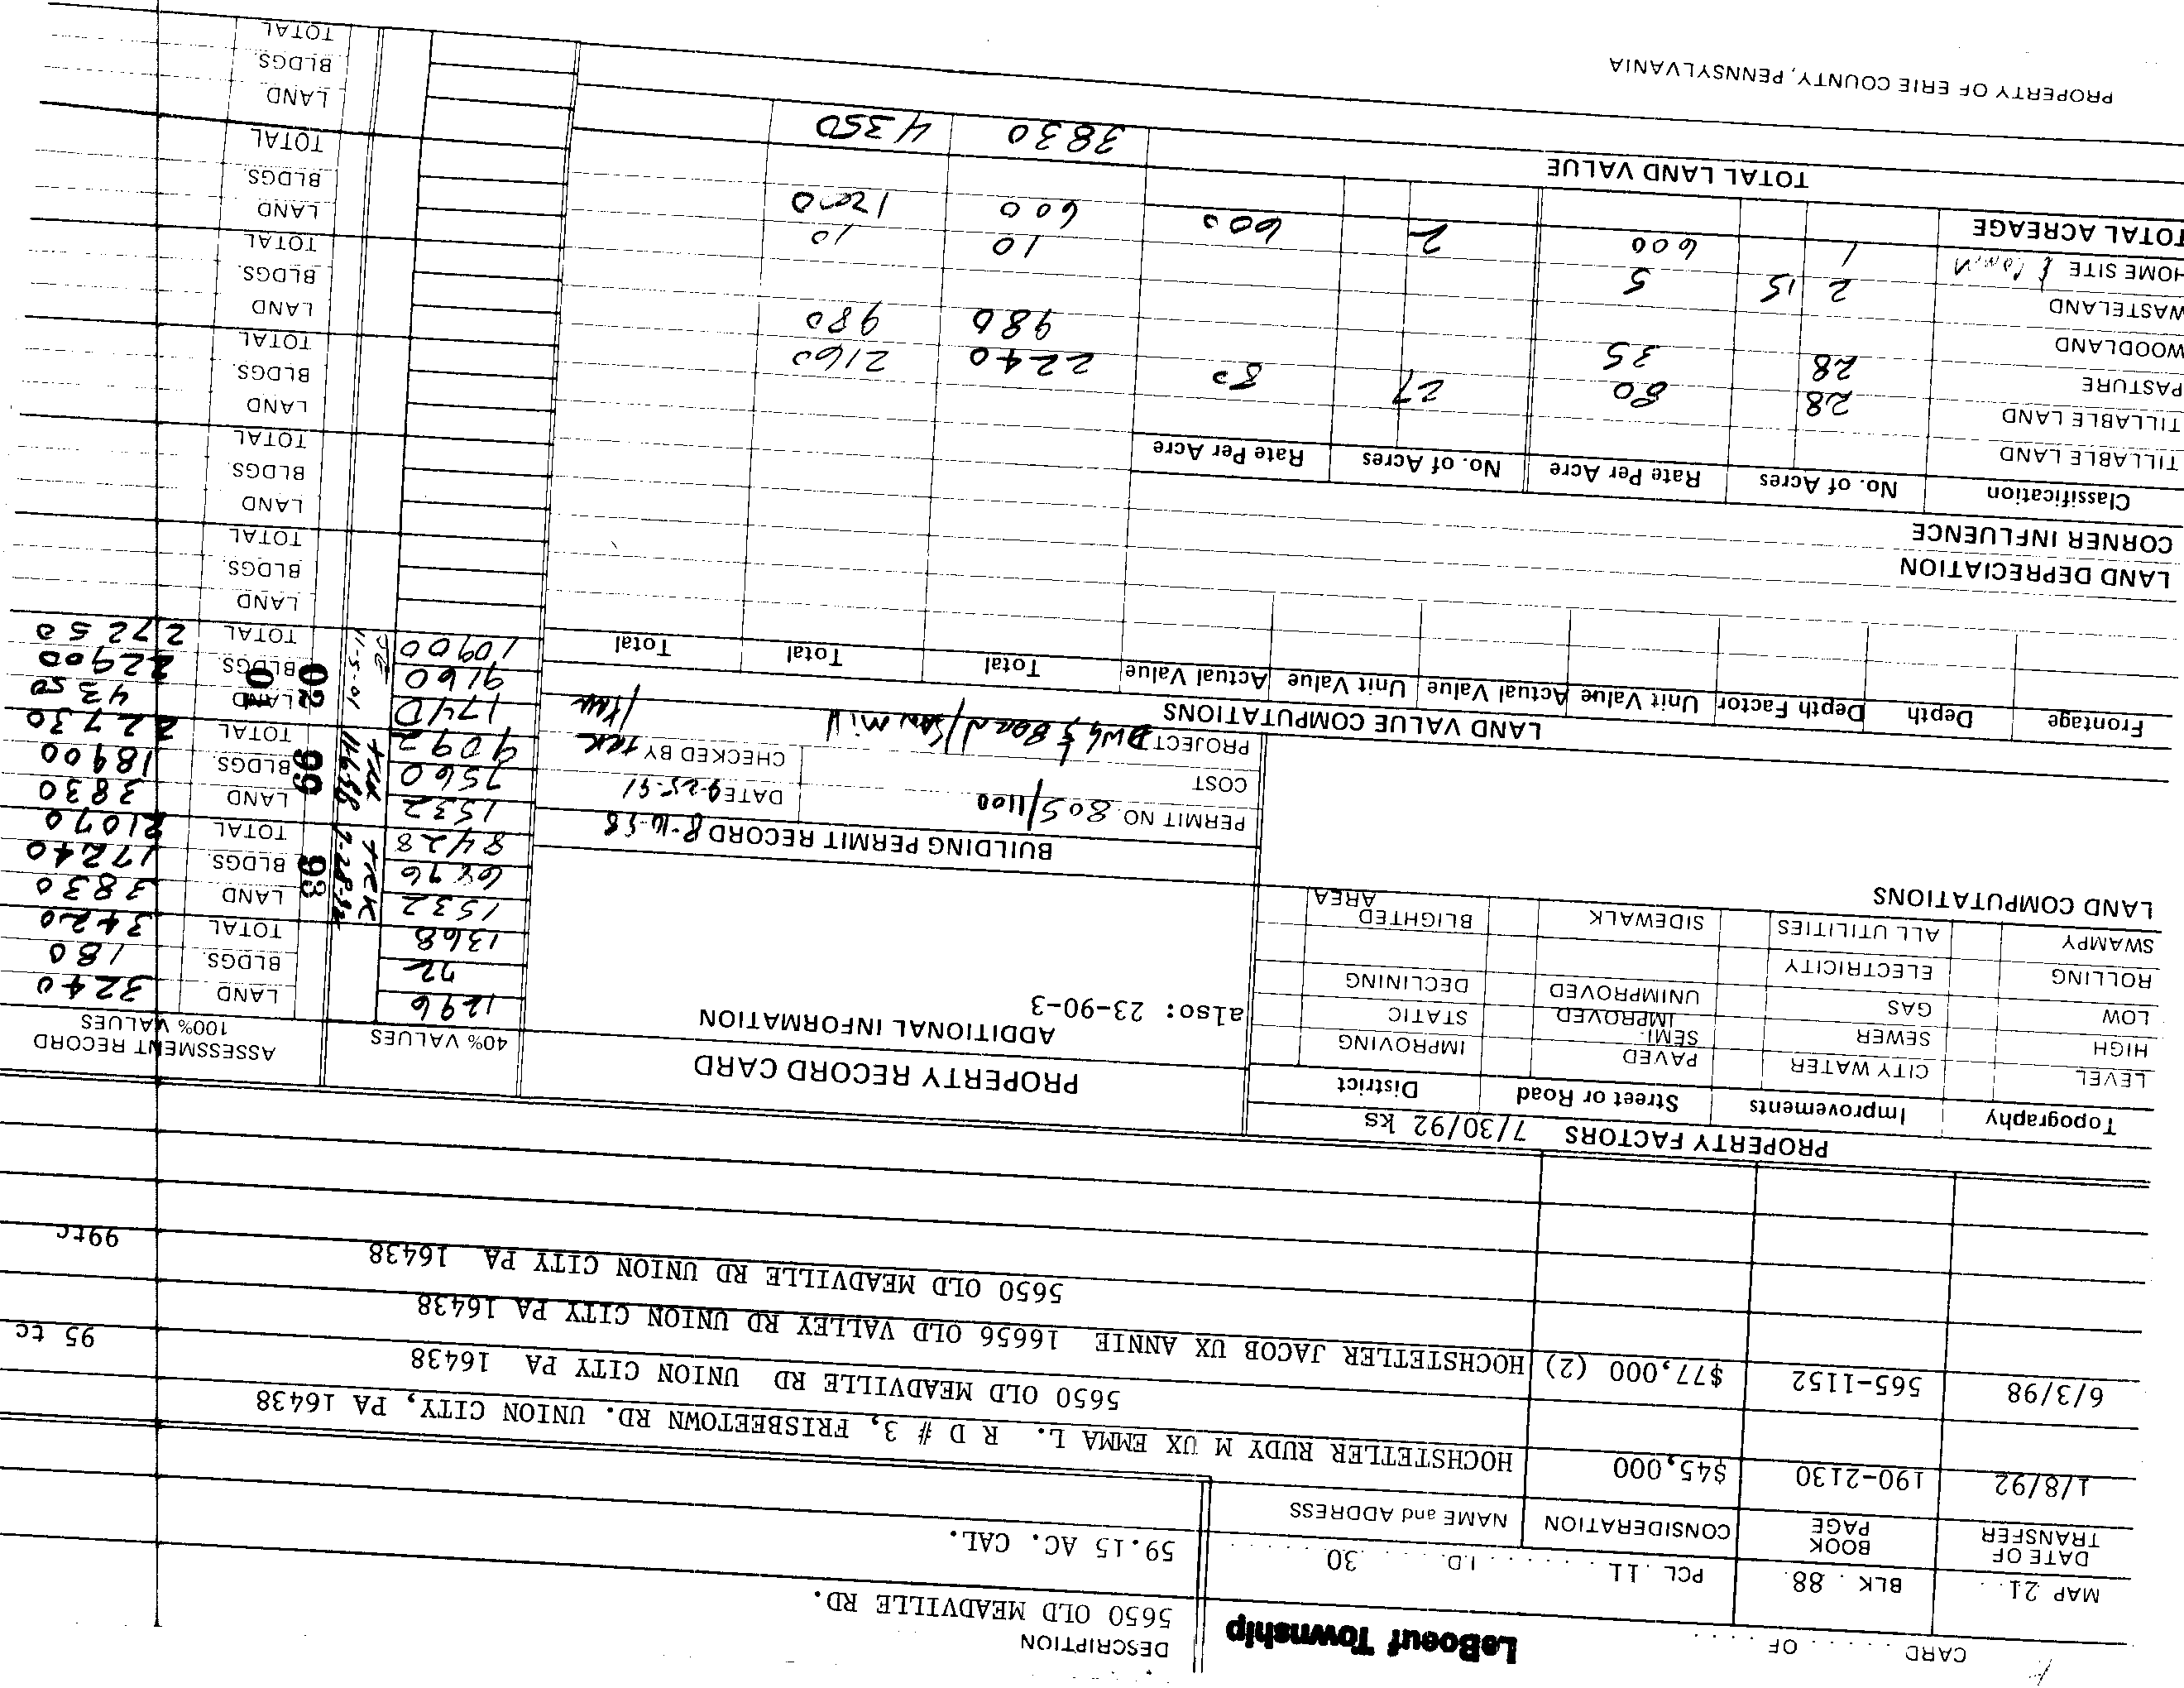 CARD . . . . . OF . . . .
LeBoeuf Township
DESCRIPTION
5650 OLD MEADVILLE RD.
MAP 21 BLK 88 PCL 11 I.D. 30
59.15 AC. CAL.
DATE OF TRANSFER BOOK PAGE CONSIDERATION NAME and ADDRESS
1/8/92 190-2130 $45,000 HOCHSTETLER RUDY M UX EMMA L. R D # 3, FRISBEETOWN RD. UNION CITY, PA 16438
5650 OLD MEADVILLE RD UNION CITY PA 16438 95 tc
6/3/98 565-1152 $77,000 (2) HOCHSTETLER JACOB UX ANNIE 16656 OLD VALLEY RD UNION CITY PA 16438
5650 OLD MEADVILLE RD UNION CITY PA 16438 99tc
PROPERTY FACTORS 7/30/92 ks
Topography Improvements Street or Road District
LEVEL CITY WATER PAVED IMPROVING
HIGH SEWER SEMI-IMPROVED STATIC
LOW GAS UNIMPROVED DECLINING
ROLLING ELECTRICITY
SWAMPY ALL UTILITIES SIDEWALK BLIGHTED AREA
LAND COMPUTATIONS
PROPERTY RECORD CARD
ADDITIONAL INFORMATION
also: 23-90-3
BUILDING PERMIT RECORD 8-16-58
PERMIT NO. 805/1100 DATE 9-25-91
COST
PROJECT DWG & BARN/SAWMILL CHECKED BY TRK
40% VALUES ASSESSMENT RECORD 100% VALUES
1296 LAND 3240
72 BLDGS. 180
1368 TOTAL 3420
1532 TRK 7-28-92 93 LAND 3830
6896 BLDGS. 17240
8428 TOTAL 21070
1532 99 LAND 3830
7560 BLDGS. 18900
9092 TOTAL 22730
1740 11-5-01 02 01 LAND 4350
9160 BLDGS. 22900
10900 TOTAL 27250
LAND
BLDGS.
TOTAL
LAND
BLDGS.
TOTAL
LAND
BLDGS.
TOTAL
LAND
BLDGS.
TOTAL
LAND
BLDGS.
TOTAL
LAND
BLDGS.
TOTAL
LAND VALUE COMPUTATIONS
Frontage Depth Depth Factor Unit Value Actual Value Unit Value Actual Value Total Total Total
LAND DEPRECIATION
CORNER INFLUENCE
Classification No. of Acres Rate Per Acre No. of Acres Rate Per Acre
TILLABLE LAND
TILLABLE LAND 28 80 27 80 2240 2160
PASTURE 28 35 980 980
WOODLAND
WASTELAND 2 15 5 10 10
HOME SITE 1 600 2 600 600 1200
TOTAL ACREAGE
TOTAL LAND VALUE 3830 4350
PROPERTY OF ERIE COUNTY, PENNSYLVANIA